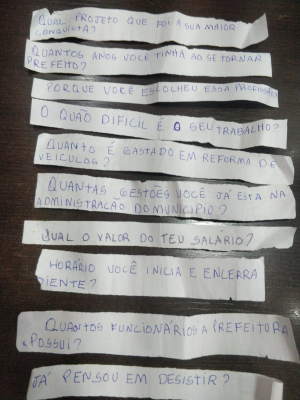 QUAL PROJETO QUE FOI A SUA MAIOR
CONQUISTA?
QUANTOS ANOS VOCÊ TINHA AO SETORNAR
PREFEITO?
PORQUE VOCÊ ESCOLHEU ESSA PROFISSÃO?
O QUÃO DIFICIL É O SEU TRABALHO?
QUANTO É GASTADO EM REFORMA DE
VEÍCULOS?
QUANTAS GESTÕES VOCÊ JÁ ESTA NA
ADMINISTRAÇÃO DO MUNICIPIO?
QUAL O VALOR DO TEU SALÁRIO?
HORÁRIO VOCÊ INICIA E ENCERRA
DIENTE?
QUANTOS FUNCIONÁRIOS A PREFEITURA
POSSUI?
JÁ PENSOU EM DESISTIR?